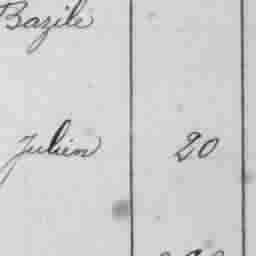 Bazile
Julien 20